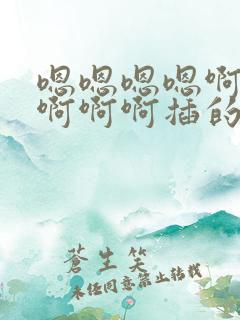 嗯嗯嗯嗯啊
啊啊啊插的
蒼生笑
未经同意禁止转载